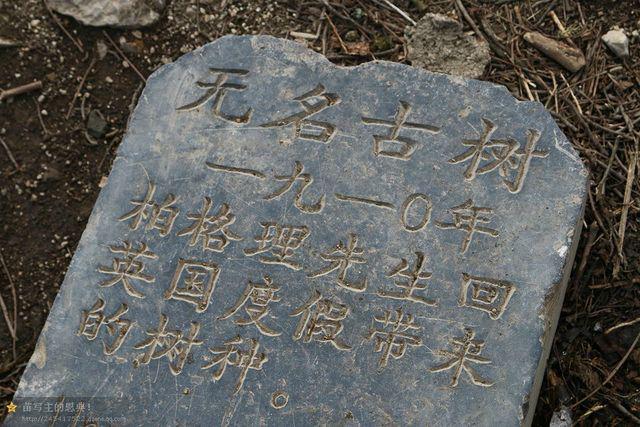 无名古树
一九一〇年
柏格理先生回
英国度假带来
的树种。
苗写主的恩典!
http://245417522.qzone.qq.com